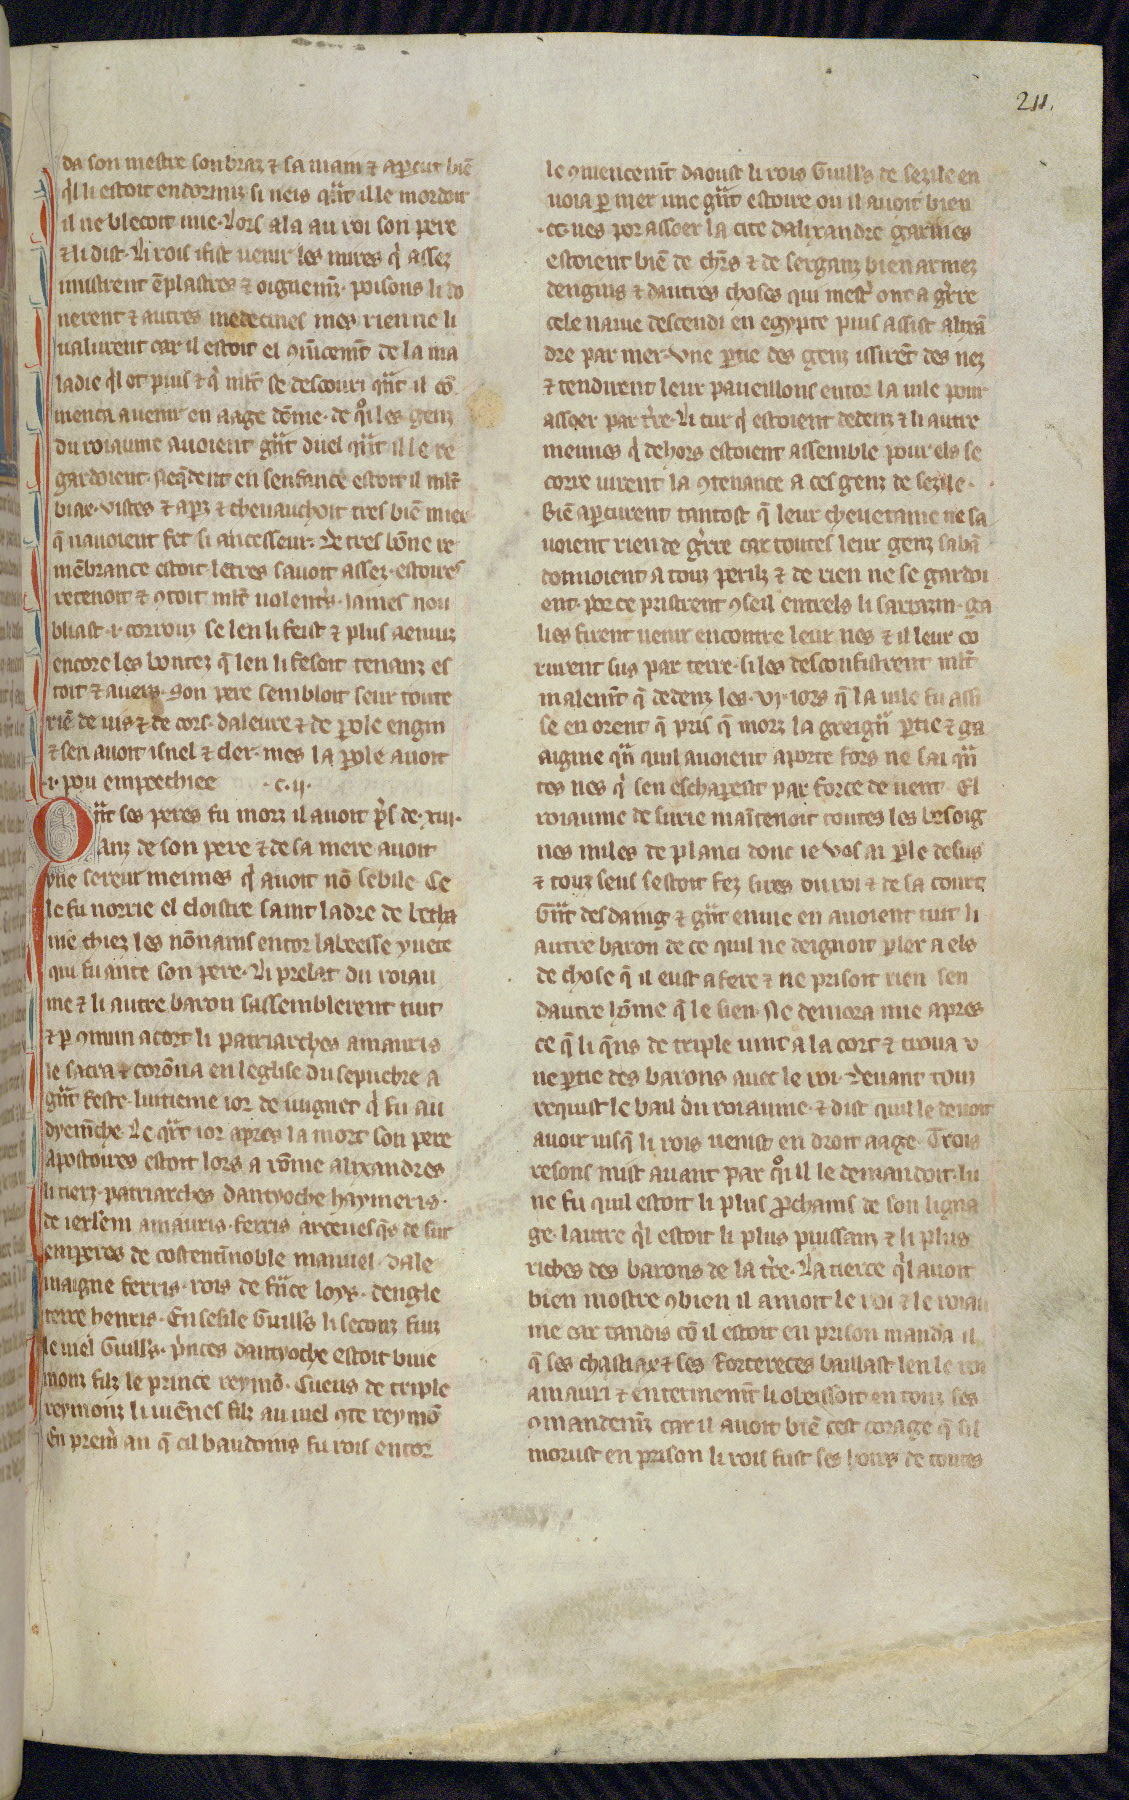 211.
da son mestre son braz ⁊ sa main ⁊ aparcut biē
q̇l li estoit endormiz si neis qn̄t il le mordoit
il ne blecoit mie. Lors ala au roi son pere
⁊ li dist. Li rois i fist uenir les mires q̇ assez
i mistrent ēplastres ⁊ oignemēz. poisons li do
nerent ⁊ autres medecines mes rien ne li
ualurent car il estoit el ꝯmēcemēt de la ma
ladie q̇l ot puis ⁊ q̇ ml̄t se descouri qn̄t il cō
menca auenir en aage dōme. de qͦi les genz
du roiaume auoient gn̄t duel qn̄t il le re
gardoient. neq̄dent en senfance estoit il ml̄t
biax. uistes ⁊ apꝛz ⁊ cheuauchoit tres biē miex
q̄ nauoient fet si ancesseur. De tres bōne re
mēbrance estoit. letres sauoit assez. estoires
retenoit ⁊ ꝯtoit ml̄t uolent's. iames nou
bliast .i. corrouz se len li feist ⁊ plus aenuiz
encore les bontez q̄ len li fesoit tenanz es
toit ⁊ auers. Son pere sembloit seur toute
riē de uis ⁊ de cors. daleure ⁊ de ꝑole engin
⁊ sen auoit isnel ⁊ cler. mes la ꝑole auoit
.i. pou empeechiee .c. ij.
Qn̄t ses peres fu morz il auoit p̄s de .xiij.
anz de son pere ⁊ de sa mere auoit
vne sereur meinnes q̇ auoit nō sebile. Ce
le fu norrie el cloistre saint ladre de betha
nie chiez les nōnains entor labeesse yuete
qui fu ante son pere. Li prelat du roiau
me ⁊ li autre baron sassemblerent tuit
⁊ ꝑ ꝯmun acort li patriarches amauris
le sacra ⁊ corōna en leglise du sepucbre a
gn̄t feste. luitieme ior de iuignet q̇ fu au
dyemēche. Le qr̄t ior apres la mort son pere
apostoires estoit lors a rōme alixandres
li tierz. patriarches dantyoche haymeris.
de ierl'em amauris. ferris arceuesq̄s de sur
emperes de costentīnoble manuel. dale
maigne ferris. rois de frāce loys. dengle
terre henris. En sesile Guill's li seconz fiuz
le uiel Guill's. p̄nces dantyoche estoit buie
monz filz le prince reymō. Cueus de triple
reymonz li uiēnes filz au uiel ꝯte reymō
En prem̄ an q̄ cil baudoins fu rois entor
le ꝯmencem̄t daoust li rois Guill's de sezile en
uoia ꝑ mer une gn̄t estoire ou il auoit bien
.cc. nes por asseer la cite dalixandre garnies
estoient biē de chrs̄ ⁊ de serganz bien armez
dengins ⁊ dautres choses qui mest' ont a gr̄re
cele nauie descendi en egypte puis assist alixā
dre par mer. vne ꝑtie des genz issirēt des nez
⁊ tendirent leur paueillons entor la uile pour
asseer par tr̄re. Li tur q̇ estoient dedenz ⁊ li autre
meimes q̇ dehors estoient assemble pour els se
corre uirent la ꝯtenance a ces genz de sezile.
Biē aꝑcurent tantost q̄ leur cheuetaine ne sa
uoient rien de gr̄re car toutes leur genz sabā
donnoient a touz perilz ⁊ de rien ne se gardoi
ent. por ce pristrent ꝯseil entrels li sarrazin. ga
lies firent uenir encontre leur nes ⁊ il leur co
rurent sus par terre. si les desconfistrent ml̄t
malem̄t q̄ dedenz les .vj. iors q̄ la uile fu assi
se en orent q̄ pris q̄ morz la greign̄ ꝑtie ⁊ ga
aigne qn̄ quil auoient aporte fors ne sai qn̄
tes nes q̇ sen eschaperent par force de uent. El
roiaume de surie maītenoit toutes les besoig
nes miles de planci dont ie vos ai ꝑle desus
⁊ touz seus sestoit fez sires du roi ⁊ de sa court
Gn̄t desdaing ⁊ gn̄t enuie en auoient tuit li
autre baron de ce quil ne deignoit ꝑler a els
de chose q̄ il eust a fere ⁊ ne prisoit rien sen
dautre hōme q̄ le sien. Ne demora mie apres
ce q̄ li q̄ns de triple uint a la cort ⁊ troua v
ne ꝑtie des barons auec le roi. Deuant touz
requist le bail du roiaume. ⁊ dist quil le deuoit
auoir iusq̄ li rois uenist en droit aage. Trois
resons mist auant par qͦi il le demandoit. lu
ne fu quil estoit li plus ꝓchains de son ligna
ge. lautre q̇l estoit li plus puissanz ⁊ li plus
riches des barons de la tr̄re. La tierce q̇l auoit
bien mostre ꝯbien il amoit le roi ⁊ le roiau
me car tandis cō il estoit en prison manda il
q̄ ses chastiax ⁊ ses fortereces baillast len le roi
amauri ⁊ enterinem̄t li obeissoit en touz ses
ꝯmandem̄z car il auoit biē cest corage q̄ sil
morust en prison li rois fust ses hoirs de toutes